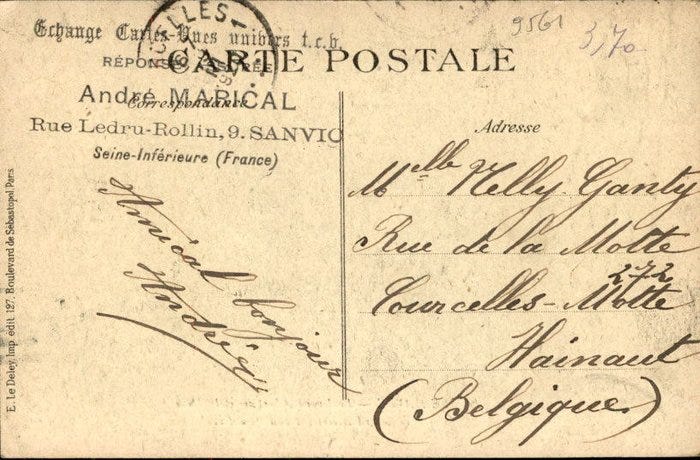 9561
3,70
Echange Cartes-Vues univers t.c.b.
CARTE POSTALE
André MARICAL
Correspondance
Rue Ledru-Rollin, 9. SANVIC
Seine-Inférieure (France)
Amical bonjour
André
Adresse
Mlle Nelly Ganty
Rue de la Motte
272
Courcelles-Motte
Hainaut
(Belgique)
E. Le Deley, imp. édit. 127, Boulevard de Sébastopol, Paris